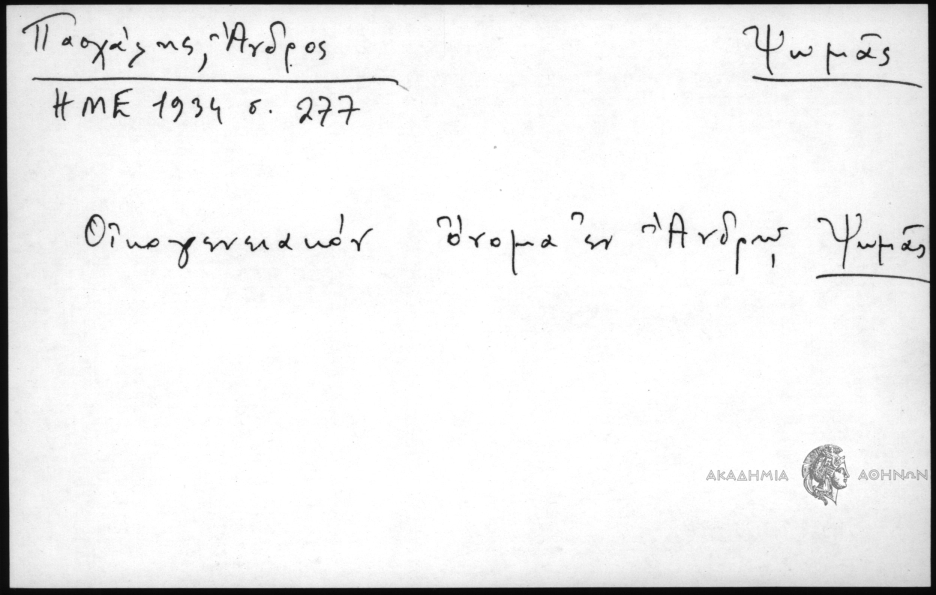 Πασχάλης, Ἄνδρος Ψωμᾶς
ΗΜΕ 1934 σ. 277
Οἰκογενειακόν ὄνομα ἐν Ἄνδρῳ Ψωμᾶς
ΑΚΑΔΗΜΙΑ ΑΘΗΝΩΝ